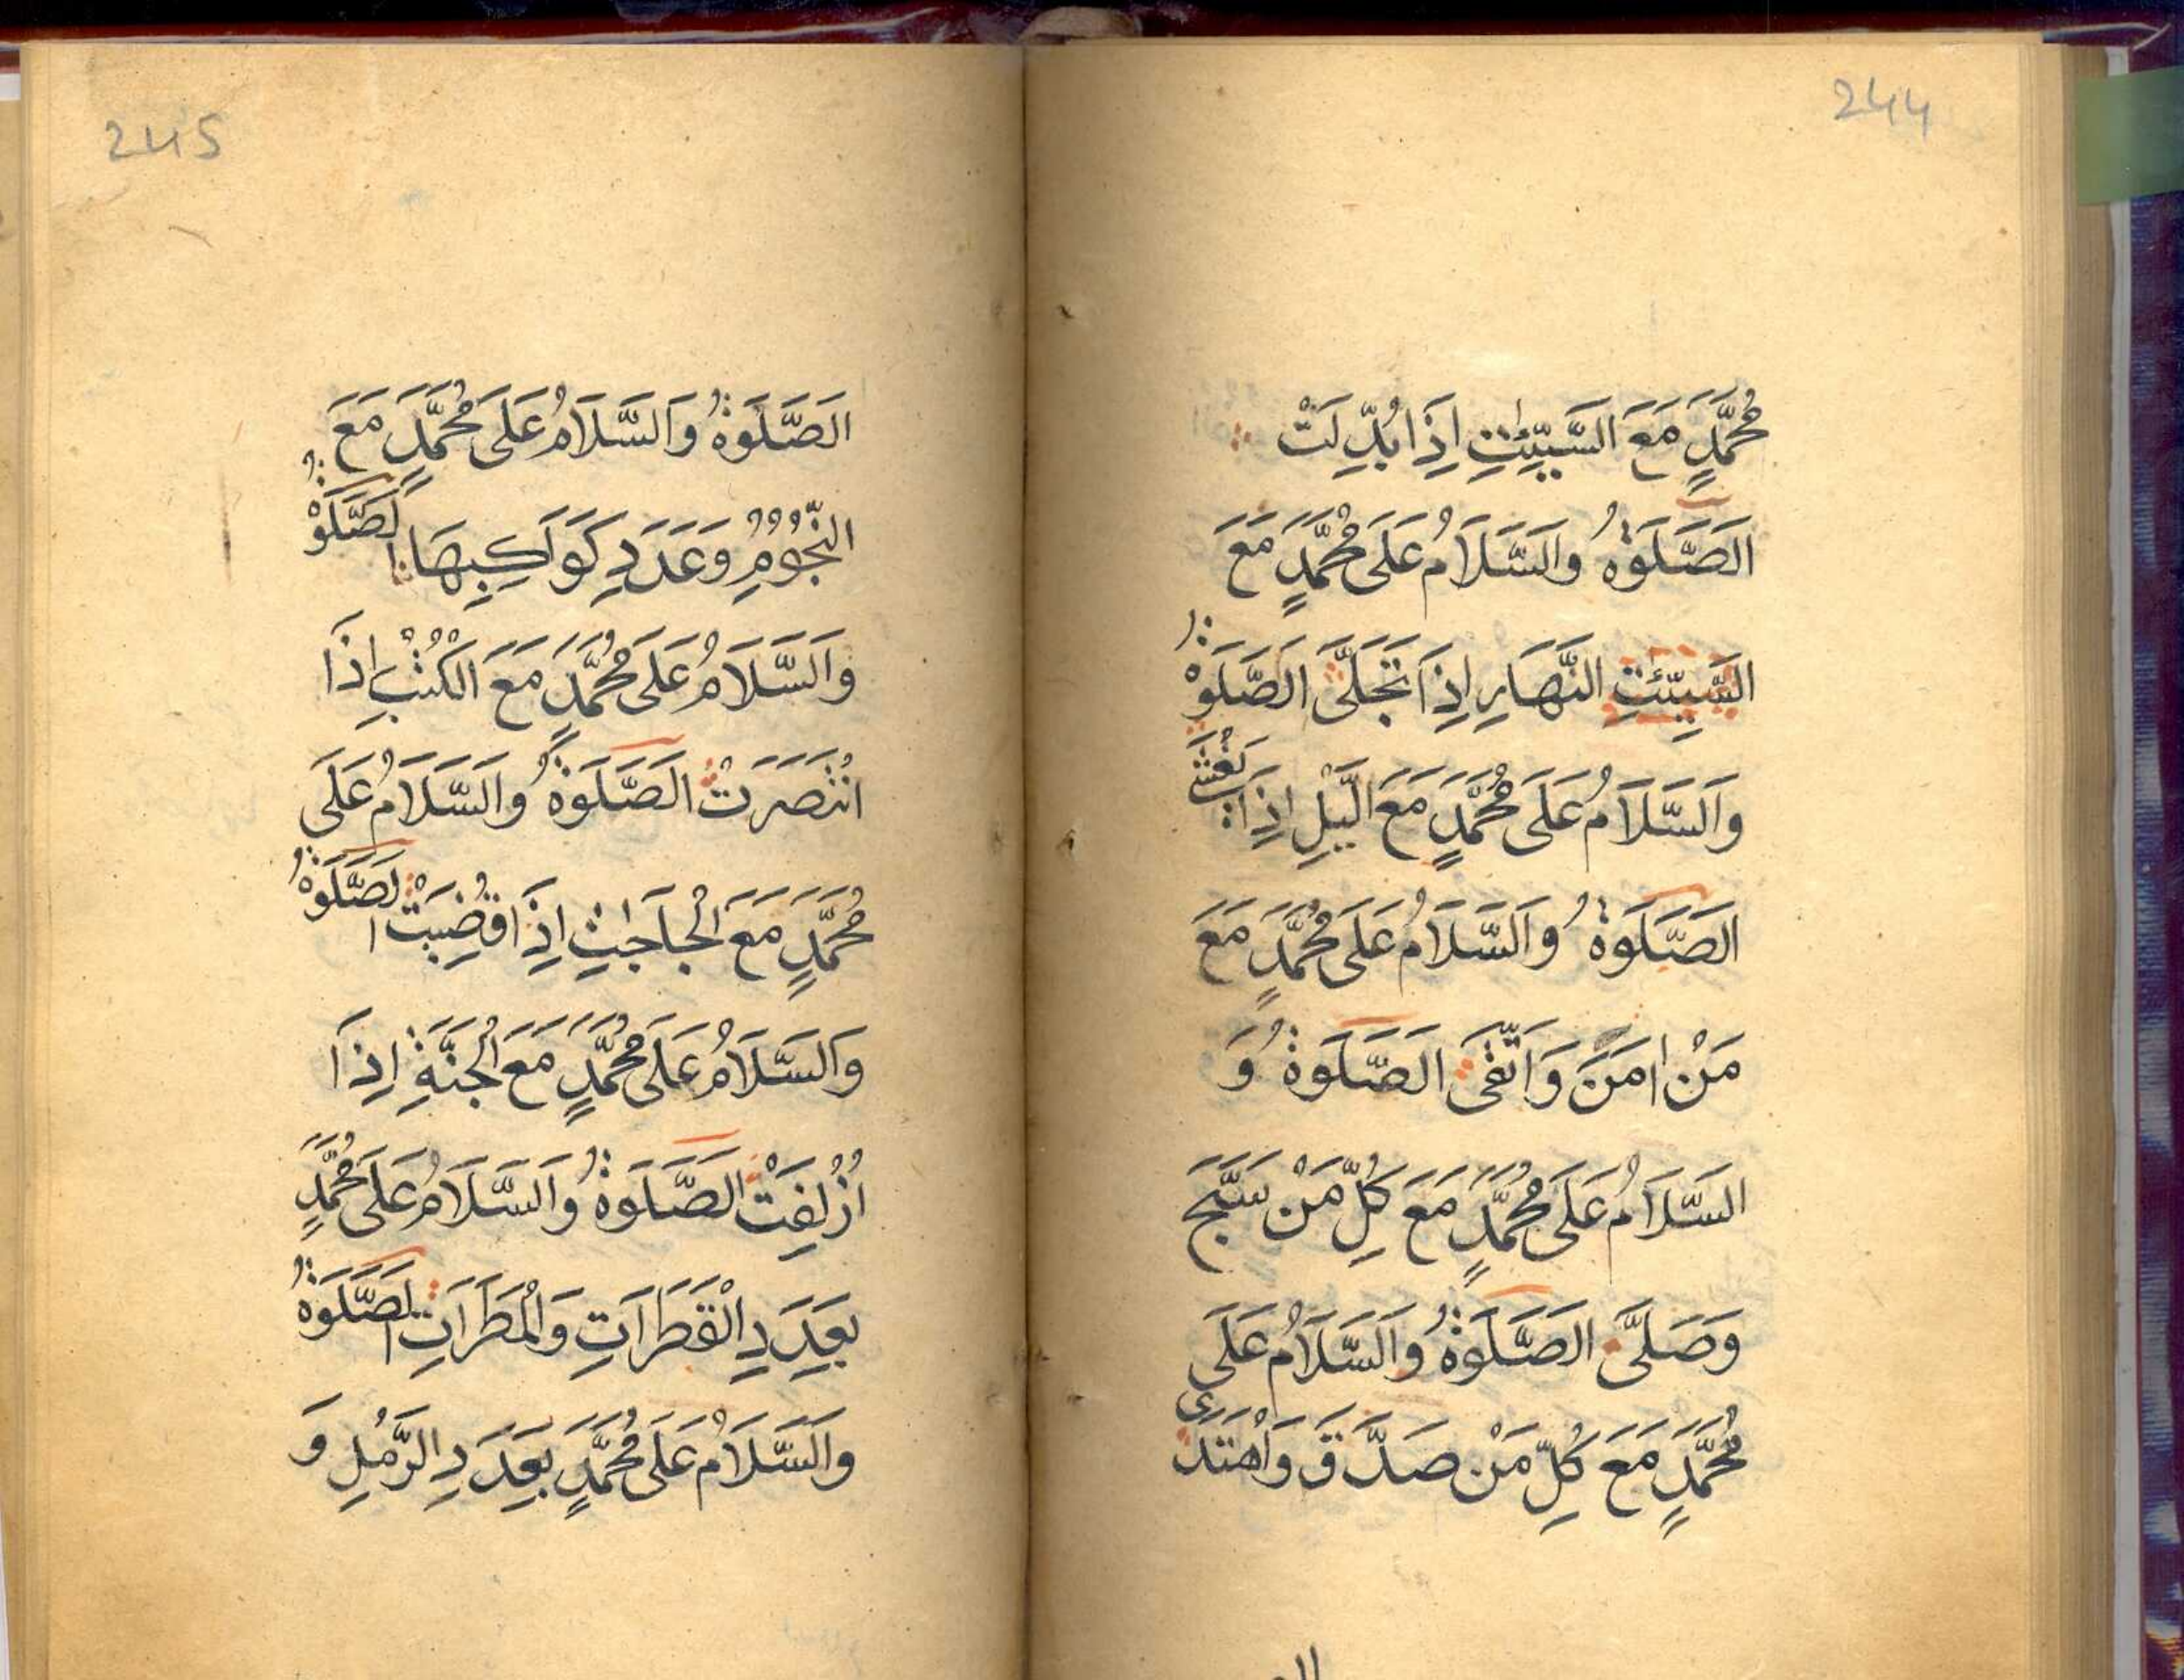 244
مُحَمَّدٍ مَعَ السَّيِّئٰتِ اِذَا بُدِّلَتْ
الصَّلٰوةُ وَالسَّلَامُ عَلَى مُحَمَّدٍ مَعَ
السَّيِّئٰتِ النَّهَارِ اِذَا تَجَلَّى الصَّلٰوةُ
وَالسَّلَامُ عَلَى مُحَمَّدٍ مَعَ الَّيْلِ اِذَا يَغْشٰى
الصَّلٰوةُ وَالسَّلَامُ عَلَى مُحَمَّدٍ مَعَ
مَنْ اٰمَنَ وَاتَّقَى الصَّلٰوةُ وَ
السَّلَامُ عَلَى مُحَمَّدٍ مَعَ كُلِّ مَنْ سَبَّحَ
وَصَلَّى الصَّلٰوةُ وَالسَّلَامُ عَلَى
مُحَمَّدٍ مَعَ كُلِّ مَنْ صَدَّقَ وَاهْتَدَى
245
الصَّلَوةُ وَالسَّلَامُ عَلَى مُحَمَّدٍ مَعَ
النُّجُوْمِ وَعَدَدِ كَوَاكِبِهَا الصَّلَوةُ
وَالسَّلَامُ عَلَى مُحَمَّدٍ مَعَ الْكُتُبِ اِذَا
انْتُصَرَتْ الصَّلَوةُ وَالسَّلَامُ عَلَى
مُحَمَّدٍ مَعَ الْحَاجٰتِ اِذَا قُضِيَتْ الصَّلَوةُ
وَالسَّلَامُ عَلَى مُحَمَّدٍ مَعَ الْجَنَّةِ اِذَا
اُزْلِفَتْ الصَّلَوةُ وَالسَّلَامُ عَلَى مُحَمَّدٍ
بِعَدَدِ الْقَطَرَاتِ وَالْمَطَرَاتِ الصَّلَوةُ
وَالسَّلَامُ عَلَى مُحَمَّدٍ بِعَدَدِ الرَّمْلِ وَ